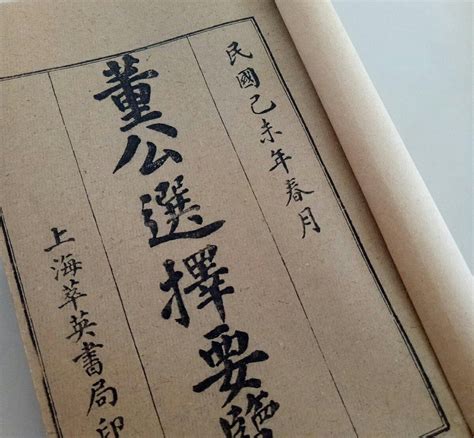 民國己未年春月
董公選擇要覽
上海萃英書局印